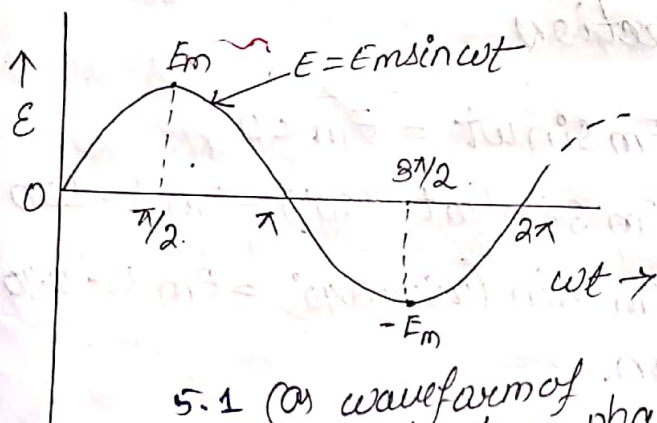 Em
E = Emsinωt
↑
ε
O
π/2
π
3π/2
2π
ωt →
- Em
5.1 (a) waveform of